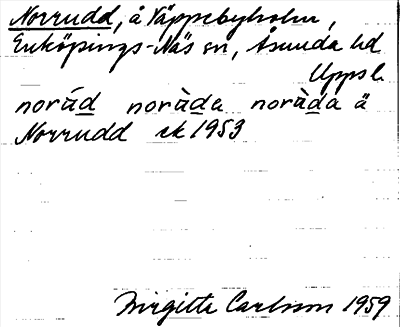 Norrudd, å Väppebyholm,
Enköpings-Näs sn, Åsunda hd
Uppsl.
noråd noràda noràda ä
Norrudd ek 1953
Birgitta Carlsson 1959